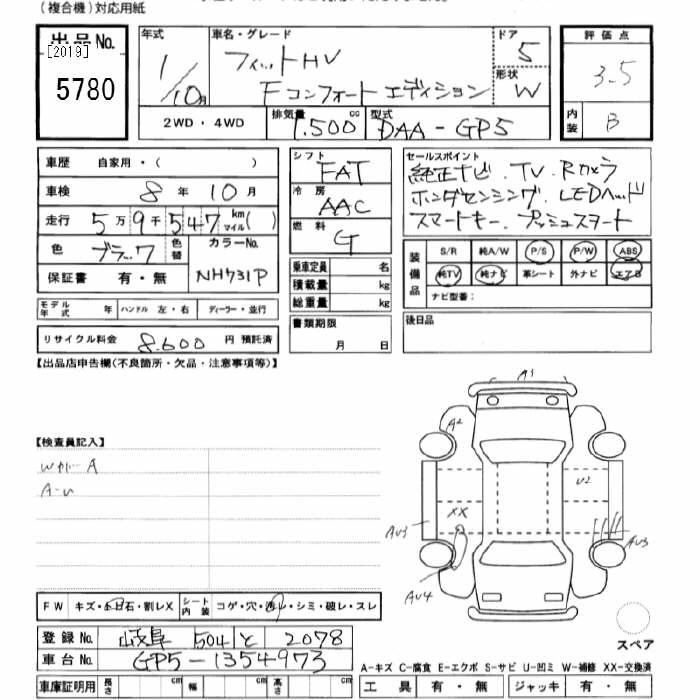 (複合機)対応用紙
出品No. [2019] 5780
年式 1/10月
車名・グレード フィットHV Fコンフォートエディション
ドア 5
形状 W
評価点 3.5
内装 B
2WD・4WD 排気量 1.500cc 型式 DAA-GP5
車歴 自家用・( )
車検 8年10月
走行 5万9千547 km マイル( )
色 ブラック 色替 カラーNo. NH731P
保証書 有・無
モデル年式 年 ハンドル 左・右 ディーラー・並行
リサイクル料金 8.600円 預託済
シフト FAT
冷房 AAC
燃料 G
乗車定員 名
積載量 kg
総重量 kg
書類期限 月 日
セールスポイント
純正ナビ. TV. Rカメラ
ホンダセンシング. LEDヘッド
スマートキー. プッシュスタート
装備品 S/R 純A/W P/S P/W ABS
純TV 純ナビ 革シート 外ナビ エアB
ナビ型番:
後日品
【出品店申告欄(不良箇所・欠品・注意事項等)】
【検査員記入】
A-U
A1
A2
U2
XX
AU3
AU3
AU4
スペア
FW キズ・飛石・割レX シート内装 コゲ・穴・汚レ・シミ・破レ・スレ
登録No. 岐阜 504 と 2078
車台No. GP5-1354973
A-キズ C-腐食 E-エクボ S-サビ U-凹ミ W-補修 XX-交換済
車庫証明用 長さ cm 幅 cm 高さ cm
工具 有・無 ジャッキ 有・無